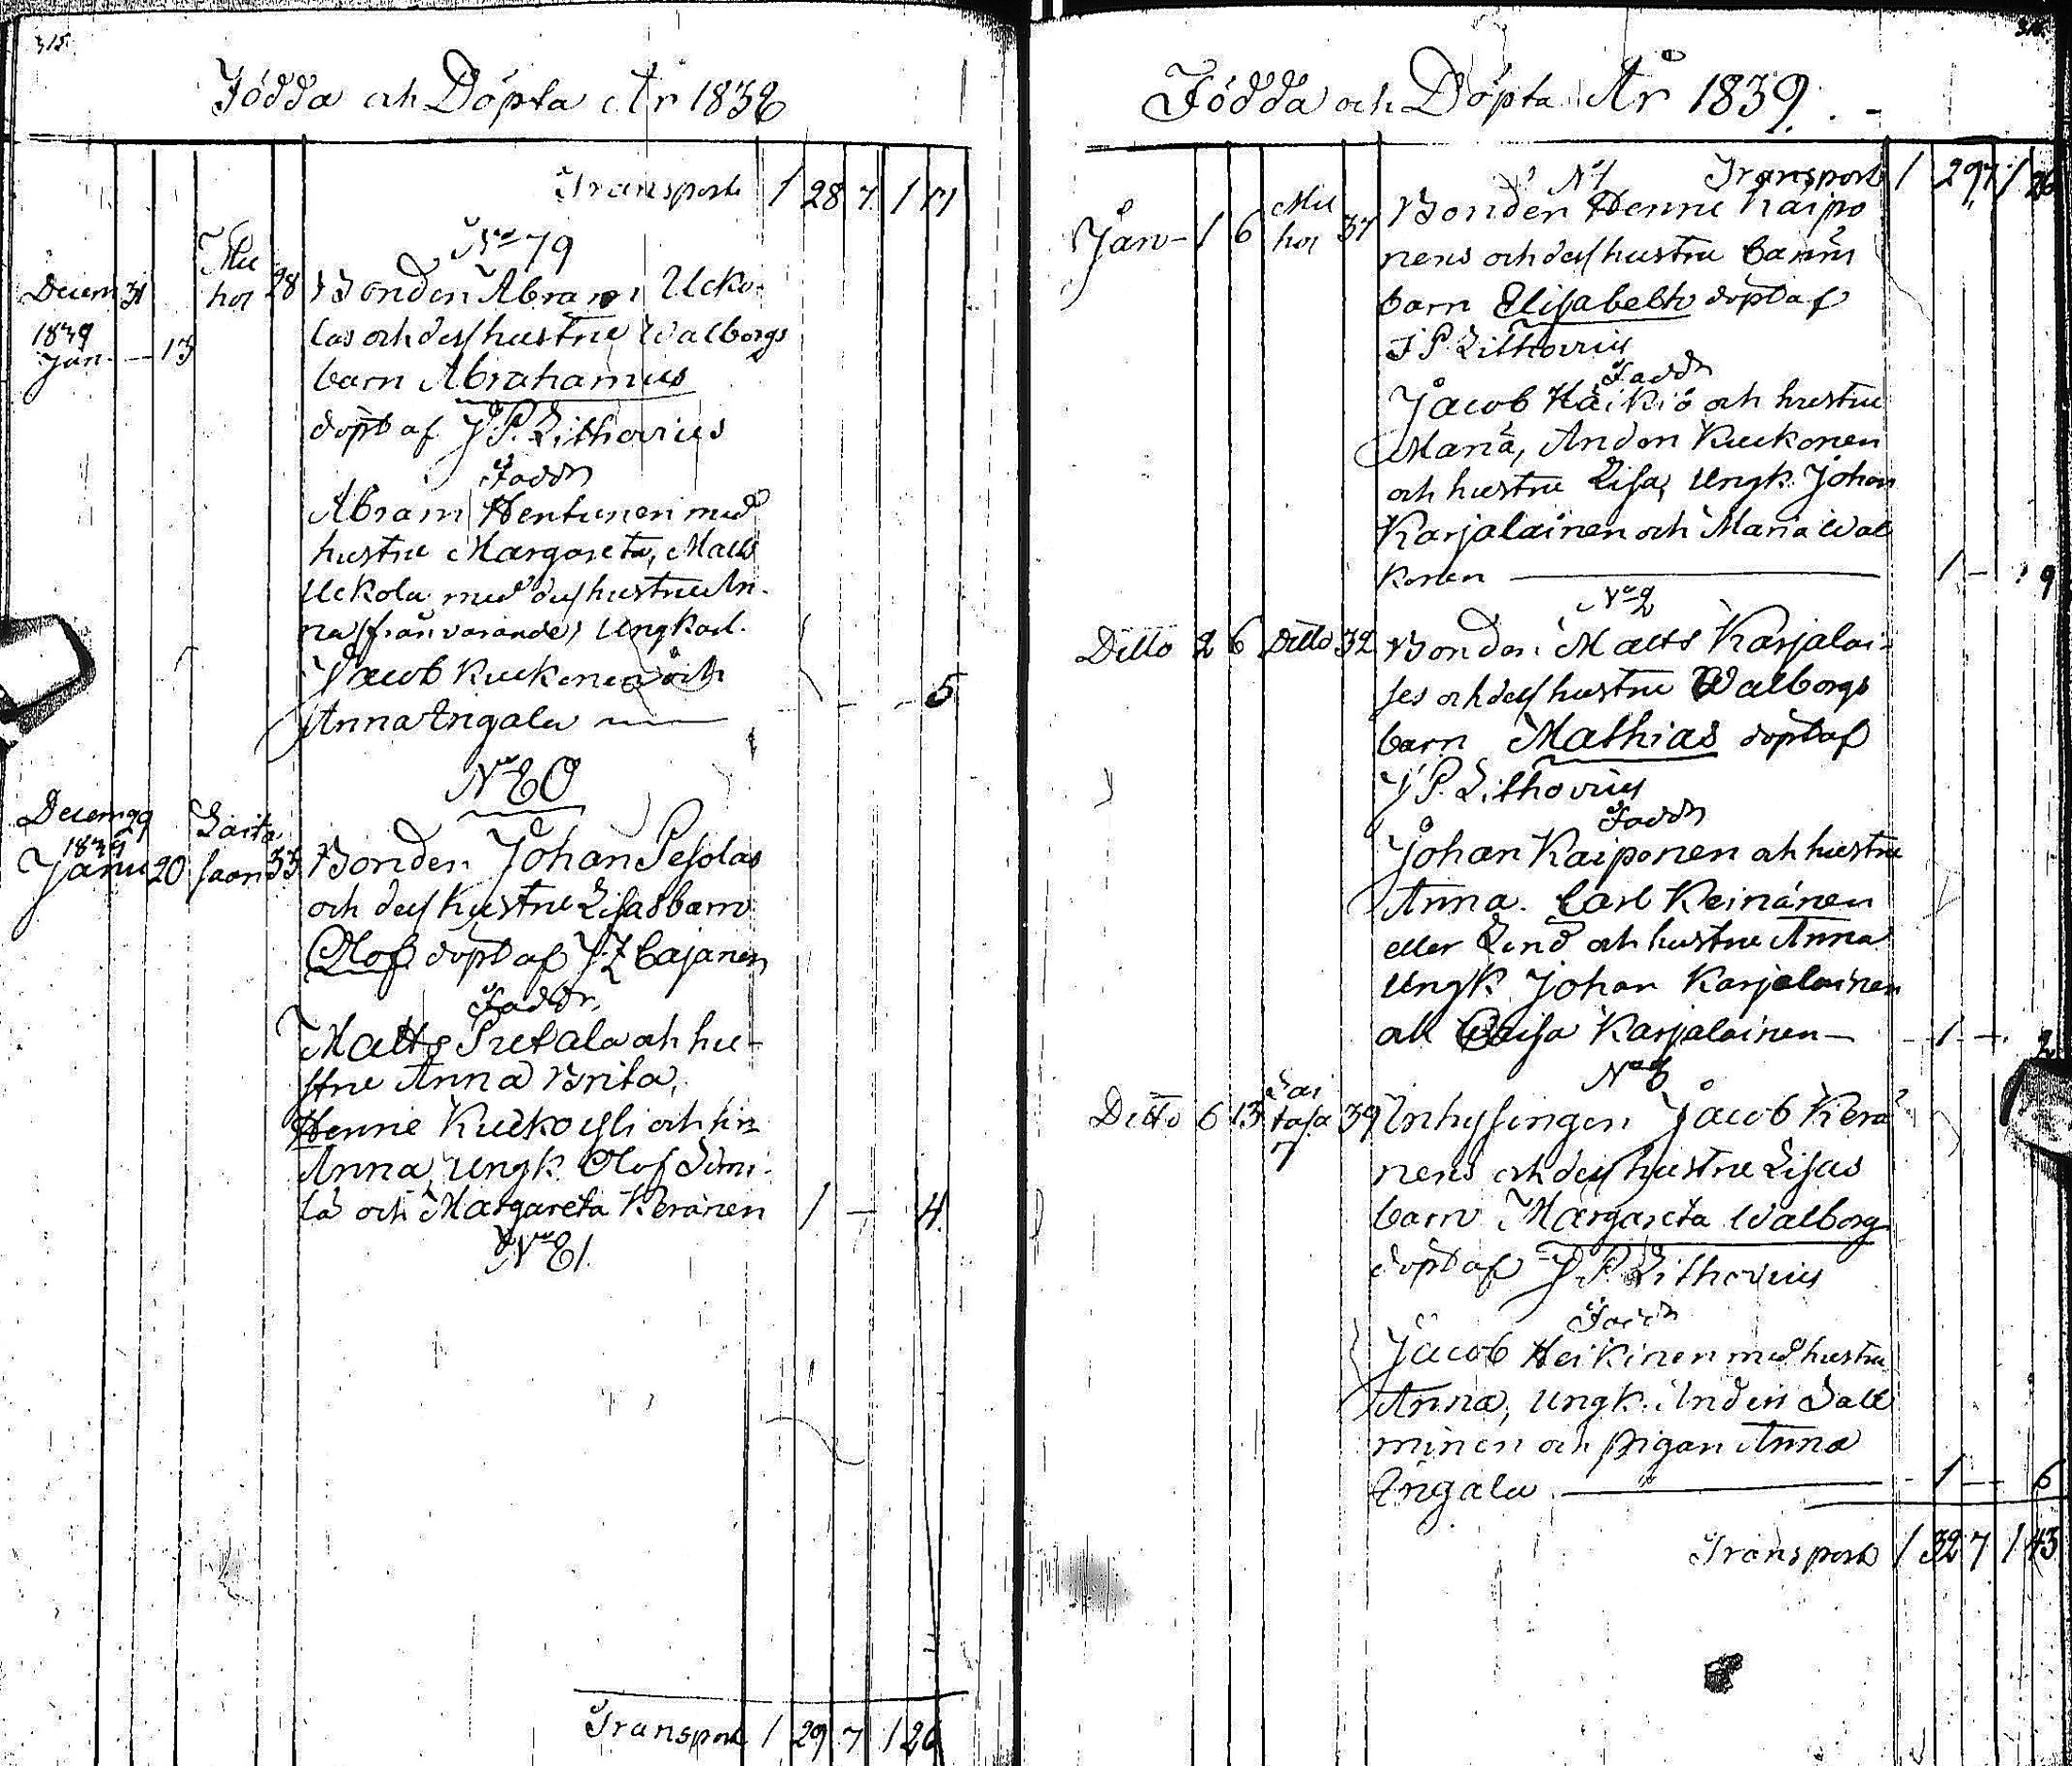 315.
Födda och Döpta År 1838
Transport 1 28 7 1 17
No 79
Decem 31 Mu
hos 28 Bonden Abram Ucko-
1839
Jan - 13 las och dess hustru Walborgs
barn Abrahamus
döpt af J P. Lithovius
Faddr
Abram Hentunen med
hustru Margareta, Matts
Uckola med dess hustru An-
na (frånvarande) Ungkarl.
Jacob Kuckonen och
Anna Angala - - 5
No 80
Decem 29 Laita
1839
Janu 20 saari 33 Bonden Johan Pesolas
och dess hustru Lisas barn
Olof döpt af J. Z Cajanen
Faddr.
Matts Pretala och hu-
stru Anna Brita,
Henne Kuckoyli och hu
Anna, Ungk. Olof Simi-
lä och Margareta Keränen 1 - 4.
No 81.
Transport 1 29 7 1 26
316.
Födda och Döpta År 1839.
No 1 Transport 1 29 7 1 26
Jan - 1 6 Mu
hos 37 Bonden Henne Kaipo
nens och dess hustru Carins
barn Elisabeth döpt af
J P. Lithovius
Faddr
Jacob Häikiö och hustru
Maria, Anders Kuckonen
och hustru Lisa, Ungk. Johan
Karjalainen och Maria Wal
konen 1 - 9
No 2
Ditto 2 6 Ditto 32 Bonden Matts Karjalai-
ses och dess hustru Walborgs
barn Mathias döpt af
J P. Lithovius
Faddr
Johan Kaiponen och hustru
Anna. Carl Keinänen
eller Lind och hustru Anna
Ungk. Johan Karjalainen
och Caisa Karjalainen - 1 - 2
No 3
Ditto 6 13 Lai
tasa 39 Inhysingen Jacob Kerä
nens och dess hustru Lisas
barn Margareta Walborg
döpt af J P. Lithovius
Faddr
Jacob Heikinen med hustru
Anna, Ungk. Anders Sall
minen och pigan Anna
Angala - 1 - 6
Transport 1 32 7 1 43